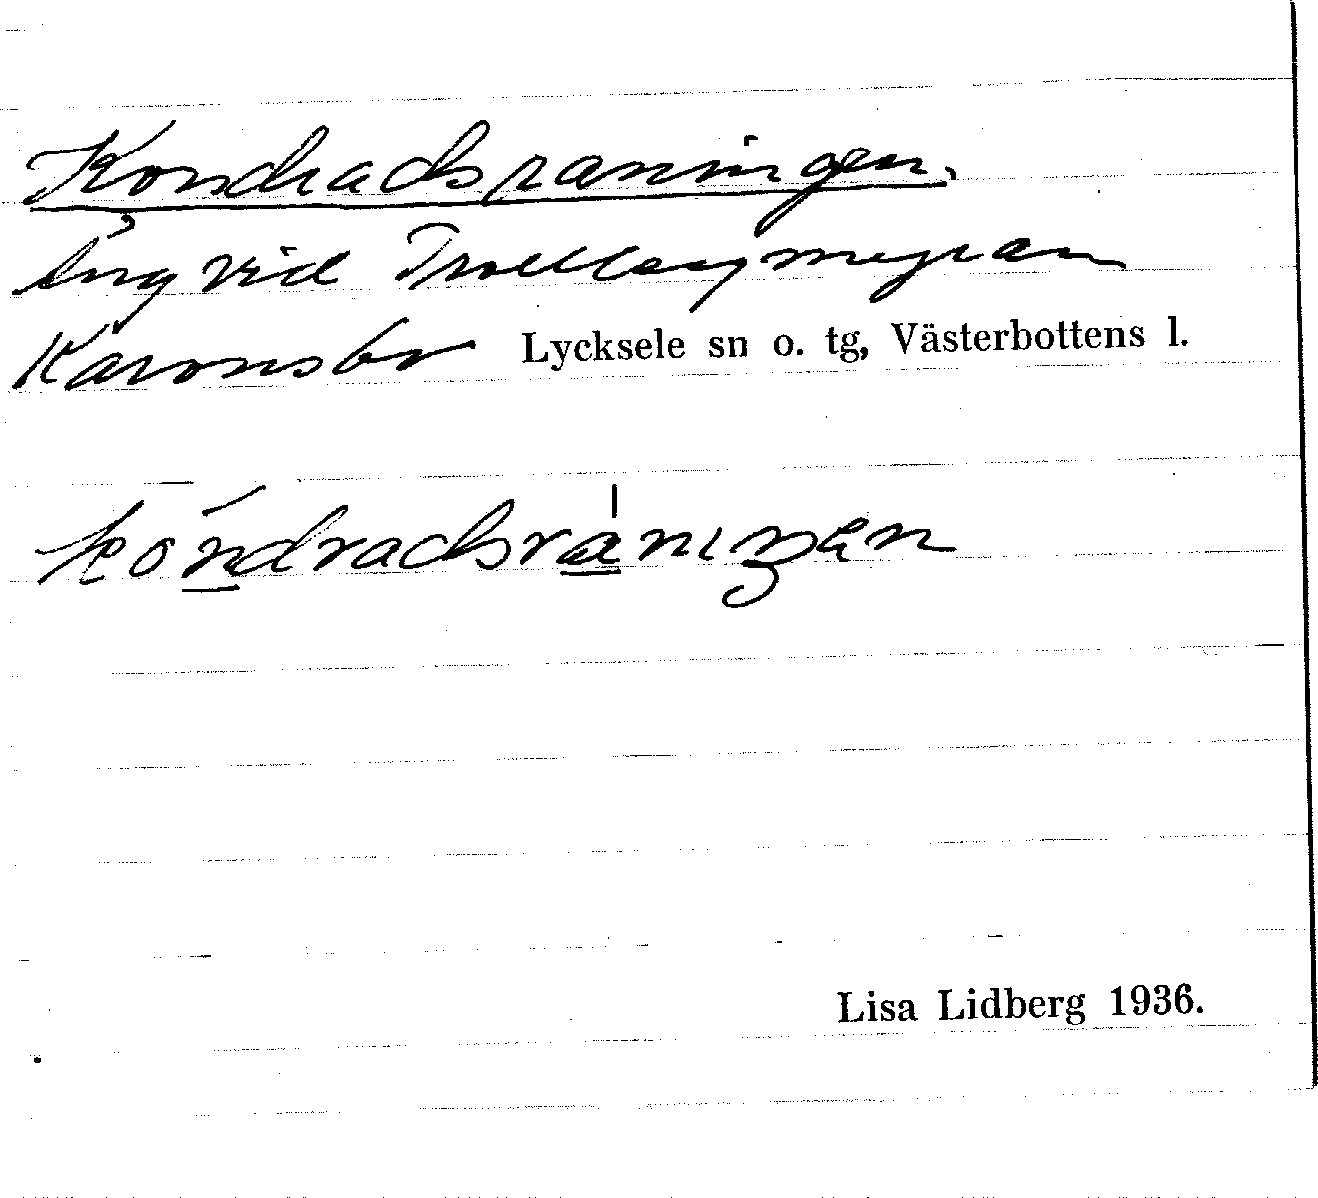 Kondradsraningen.
Äng vid Trollbergmyran
Karonsbo Lycksele sn o. tg, Västerbottens l.
kóndradsrànıŋen
Lisa Lidberg 1936.